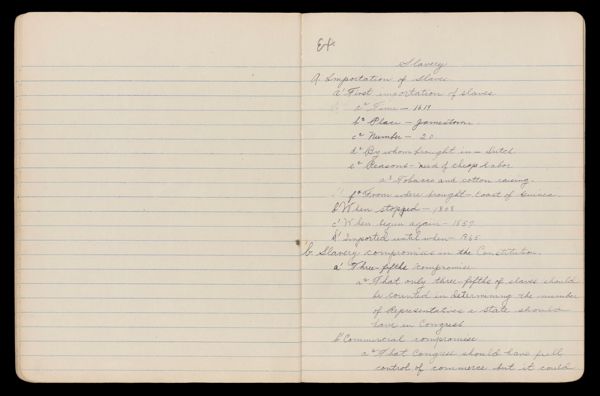 Ex
Slavery
A Importation of Slaves
a' First importation of slaves
a" Time - 1619
b" Place - Jamestown
c" Number - 20
d" By whom brought in - Dutch
e" Reasons - need of cheap labor
a' Tobacco and cotton raising.
f" From where brought - Coast of Guinea.
b' When stopped - 1808
c' When begun again - 1857
d' Imported until when - 1865
b. Slavery compromises in the Constitution.
a' Three-fifths compromise
a" That only three-fifths of slaves should
be counted in determining the number
of Representatives a State should
have in Congress
b' Commercial compromise
a" That Congress should have full
control of commerce but it could